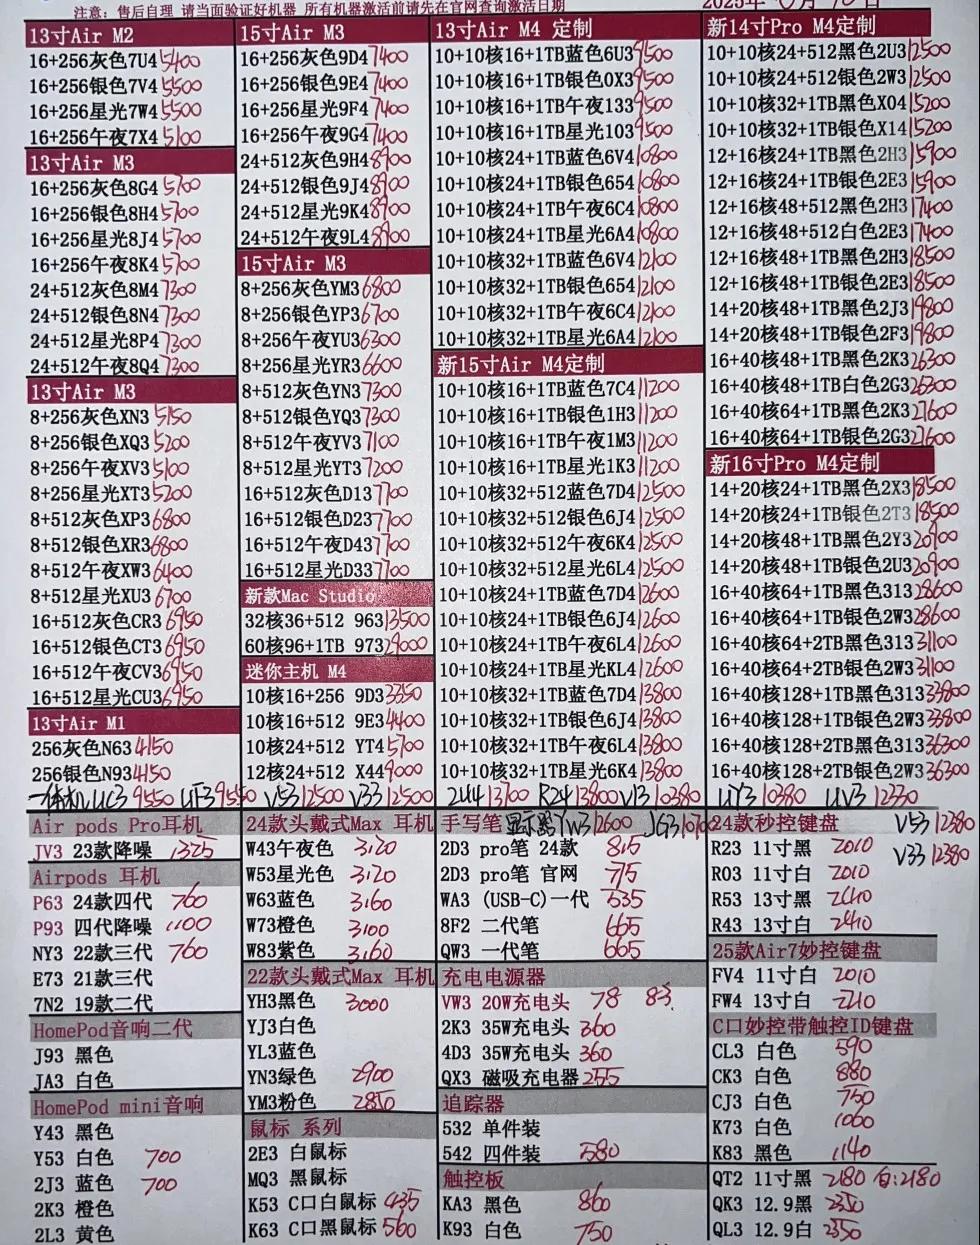 注意: 售后自理 请当面验证好机器 所有机器激活前请先在官网查询激活日期
13寸Air M2
16+256灰色7U4 5400
16+256银色7V4 5500
16+256星光7W4 5500
16+256午夜7X4 5100
13寸Air M3
16+256灰色8G4 5700
16+256银色8H4 5700
16+256星光8J4 5700
16+256午夜8K4 5700
24+512灰色8M4 7300
24+512银色8N4 7300
24+512星光8P4 7300
24+512午夜8Q4 7300
13寸Air M3
8+256灰色XN3 5150
8+256银色XQ3 5200
8+256午夜XV3 5100
8+256星光XT3 5200
8+512灰色XP3 6800
8+512银色XR3 6800
8+512午夜XW3 6400
8+512星光XU3 6700
16+512灰色CR3 6950
16+512银色CT3 6950
16+512午夜CV3 6950
16+512星光CU3 6950
13寸Air M1
256灰色N63 4150
256银色N93 4150
15寸Air M3
16+256灰色9D4 7400
16+256银色9E4 7400
16+256星光9F4 7400
16+256午夜9G4 7400
24+512灰色9H4 8900
24+512银色9J4 8900
24+512星光9K4 8900
24+512午夜9L4 8900
15寸Air M3
8+256灰色YM3 6800
8+256银色YP3 6700
8+256午夜YU3 6300
8+256星光YR3 6600
8+512灰色YN3 7300
8+512银色YQ3 7300
8+512午夜YV3 7100
8+512星光YT3 7200
16+512灰色D13 7700
16+512银色D23 7700
16+512午夜D43 7700
16+512星光D33 7700
新款Mac Studio
32核36+512 963 13500
60核96+1TB 973 29000
迷你主机 M4
10核16+256 9D3 3350
10核16+512 9E3 4400
10核24+512 YT4 5700
12核24+512 X44 9000
13寸Air M4 定制
10+10核16+1TB蓝色6U3 9500
10+10核16+1TB银色0X3 9500
10+10核16+1TB午夜133 9500
10+10核16+1TB星光103 9500
10+10核24+1TB蓝色6V4 10800
10+10核24+1TB银色654 10800
10+10核24+1TB午夜6C4 10800
10+10核24+1TB星光6A4 10800
10+10核32+1TB蓝色6V4 12100
10+10核32+1TB银色654 12100
10+10核32+1TB午夜6C4 12100
10+10核32+1TB星光6A4 12100
新15寸Air M4定制
10+10核16+1TB蓝色7C4 11200
10+10核16+1TB银色1H3 11200
10+10核16+1TB午夜1M3 11200
10+10核16+1TB星光1K3 11200
10+10核32+512蓝色7D4 12500
10+10核32+512银色6J4 12500
10+10核32+512午夜6K4 12500
10+10核32+512星光6L4 12500
10+10核24+1TB蓝色7D4 12600
10+10核24+1TB银色6J4 12600
10+10核24+1TB午夜6L4 12600
10+10核24+1TB星光KL4 12600
10+10核32+1TB蓝色7D4 13800
10+10核32+1TB银色6J4 13800
10+10核32+1TB午夜6L4 13800
10+10核32+1TB星光6K4 13800
新14寸Pro M4定制
10+10核24+512黑色2U3 12500
10+10核24+512银色2W3 12500
10+10核32+1TB黑色X04 15200
10+10核32+1TB银色X14 15200
12+16核24+1TB黑色2H3 15900
12+16核24+1TB银色2E3 15900
12+16核48+512黑色2H3 17400
12+16核48+512白色2E3 17400
12+16核48+1TB黑色2H3 18500
12+16核48+1TB银色2E3 18500
14+20核48+1TB黑色2J3 19800
14+20核48+1TB银色2F3 19800
16+40核48+1TB黑色2K3 26300
16+40核48+1TB白色2G3 26300
16+40核64+1TB黑色2K3 27600
16+40核64+1TB银色2G3 27600
新16寸Pro M4定制
14+20核24+1TB黑色2X3 18500
14+20核24+1TB银色2T3 18500
14+20核48+1TB黑色2Y3 20900
14+20核48+1TB银色2U3 20900
16+40核64+1TB黑色313 28600
16+40核64+1TB银色2W3 28600
16+40核64+2TB黑色313 31100
16+40核64+2TB银色2W3 31100
16+40核128+1TB黑色313 33800
16+40核128+1TB银色2W3 33800
16+40核128+2TB黑色313 36300
16+40核128+2TB银色2W3 36300
一体机UC3 9550 UF3 9550 V53 12500 V33 12500 2U4 13700 R24 13800 V13 10380 UY3 10380 UV3 12330
V53 12380
V33 12380
Air pods Pro耳机
JV3 23款降噪 1325
Airpods 耳机
P63 24款四代 760
P93 四代降噪 1100
NY3 22款三代 760
E73 21款三代
7N2 19款二代
HomePod音响二代
J93 黑色
JA3 白色
HomePod mini音响
Y43 黑色
Y53 白色 700
2J3 蓝色 700
2K3 橙色
2L3 黄色
24款头戴式Max 耳机
W43午夜色 3120
W53星光色 3120
W63蓝色 3160
W73橙色 3100
W83紫色 3160
22款头戴式Max 耳机
YH3黑色 3000
YJ3白色
YL3蓝色
YN3绿色 2900
YM3粉色 2850
鼠标 系列
2E3 白鼠标
MQ3 黑鼠标
K53 C口白鼠标 435
K63 C口黑鼠标 560
手写笔 显示器YW3 12600 JG3
2D3 pro笔 24款 815
2D3 pro笔 官网 715
WA3 (USB-C)一代 535
8F2 二代笔 665
QW3 一代笔 665
充电电源器
VW3 20W充电头 78 83
2K3 35W充电头 360
4D3 35W充电头 360
QX3 磁吸充电器 255
追踪器
532 单件装
542 四件装 580
触控板
KA3 黑色 860
K93 白色 750
24款秒控键盘
R23 11寸黑 2010
R03 11寸白 2010
R53 13寸黑 2410
R43 13寸白 2410
25款Air7妙控键盘
FV4 11寸白 2010
FW4 13寸白 2210
C口妙控带触控ID键盘
CL3 白色 590
CK3 白色 880
CJ3 白色 750
K73 白色 1060
K83 黑色 1140
QT2 11寸黑 2180 白:2180
QK3 12.9黑 2350
QL3 12.9白 2350